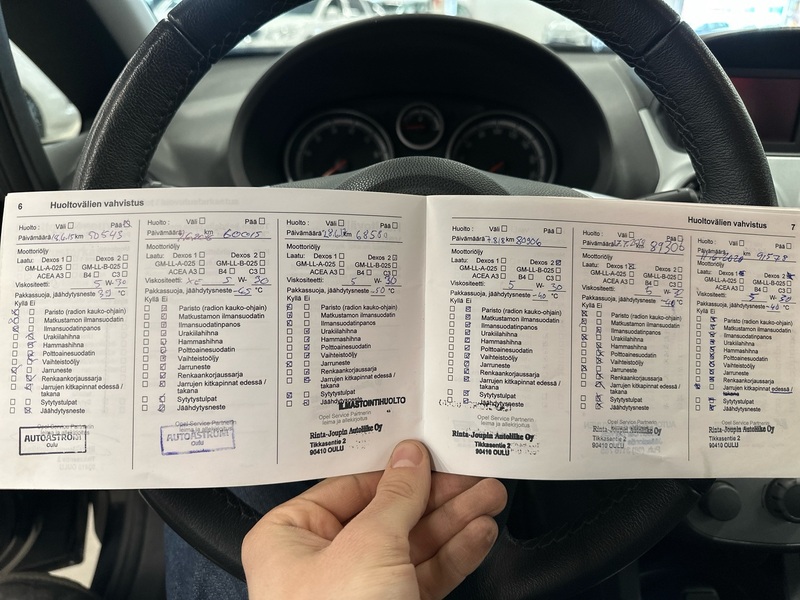 6 Huoltovälien vahvistus
Huolto : Väli Pää
Päivämäärä 18.6.15 km 50543
Moottoriöljy
Laatu: Dexos 1 Dexos 2
GM-LL-A-025 GM-LL-B-025
ACEA A3 B4 C3
Viskositeetti 5 W- 30
Pakkassuoja, jäähdytysneste °C
Kyllä Ei
Paristo (radion kauko-ohjain)
Matkustamon ilmansuodatin
Ilmansuodatinpanos
Urakiilahihna
Hammashihna
Polttoainesuodatin
Vaihteistoöljy
Jarruneste
Renkaankorjaussarja
Jarrujen kitkapinnat edessä /
takana
Sytytystulpat
Jäähdytysneste
AUTOASTROM
OULU
Huolto : Väli Pää
Päivämäärä km 60015
Moottoriöljy
Laatu: Dexos 1 Dexos 2
GM-LL-A-025 GM-LL-B-025
ACEA A3 B4 C3
Viskositeetti 5 W- 30
Pakkassuoja, jäähdytysneste -45 °C
Kyllä Ei
Paristo (radion kauko-ohjain)
Matkustamon ilmansuodatin
Ilmansuodatinpanos
Urakiilahihna
Hammashihna
Polttoainesuodatin
Vaihteistoöljy
Jarruneste
Renkaankorjaussarja
Jarrujen kitkapinnat edessä /
takana
Sytytystulpat
Jäähdytysneste
Opel Service Partnerin
leima ja allekirjoitus
AUTOASTROM
OULU
Huolto : Väli Pää
Päivämäärä km
Moottoriöljy
Laatu: Dexos 1 Dexos 2
GM-LL-A-025 GM-LL-B-025
ACEA A3 B4 C3
Viskositeetti 5 W- 30
Pakkassuoja, jäähdytysneste -50 °C
Kyllä Ei
Paristo (radion kauko-ohjain)
Matkustamon ilmansuodatin
Ilmansuodatinpanos
Urakiilahihna
Hammashihna
Polttoainesuodatin
Vaihteistoöljy
Jarruneste
Renkaankorjaussarja
Jarrujen kitkapinnat edessä /
takana
Sytytystulpat
Jäähdytysneste
ILMASTOINTIHUOLTO
Opel Service Partnerin
leima ja allekirjoitus
Rinta-Joupin Autoliike Oy
Tikkasentie 2
90410 OULU
Huoltovälien vahvistus 7
Huolto : Väli Pää
Päivämäärä 7.8.18 km 80906
Moottoriöljy
Laatu: Dexos 1 Dexos 2
GM-LL-A-025 GM-LL-B-025
ACEA A3 B4 C3
Viskositeetti 5 W- 30
Pakkassuoja, jäähdytysneste -40 °C
Kyllä Ei
Paristo (radion kauko-ohjain)
Matkustamon ilmansuodatin
Ilmansuodatinpanos
Urakiilahihna
Hammashihna
Polttoainesuodatin
Vaihteistoöljy
Jarruneste
Renkaankorjaussarja
Jarrujen kitkapinnat edessä /
takana
Sytytystulpat
Jäähdytysneste
Opel Service Partnerin
leima ja allekirjoitus
Rinta-Joupin Autoliike Oy
Tikkasentie 2
90410 OULU
Huolto : Väli Pää
Päivämäärä km 89306
Moottoriöljy
Laatu: Dexos 1 Dexos 2
GM-LL-A-025 GM-LL-B-025
ACEA A3 B4 C3
Viskositeetti 5 W- 30
Pakkassuoja, jäähdytysneste °C
Kyllä Ei
Paristo (radion kauko-ohjain)
Matkustamon ilmansuodatin
Ilmansuodatinpanos
Urakiilahihna
Hammashihna
Polttoainesuodatin
Vaihteistoöljy
Jarruneste
Renkaankorjaussarja
Jarrujen kitkapinnat edessä /
takana
Sytytystulpat
Jäähdytysneste
Opel Service Partnerin
Rinta-Joupin Autoliike Oy
Tikkasentie 2
90410 OULU
Huolto : Väli Pää
Päivämäärä km 91578
Moottoriöljy
Laatu: Dexos 1 Dexos 2
GM-LL-A-025 GM-LL-B-025
ACEA A3 B4 C3
Viskositeetti 5 W- 30
Pakkassuoja, jäähdytysneste -40 °C
Kyllä Ei
Paristo (radion kauko-ohjain)
Matkustamon ilmansuodatin
Ilmansuodatinpanos
Urakiilahihna
Hammashihna
Polttoainesuodatin
Vaihteistoöljy
Jarruneste
Renkaankorjaussarja
Jarrujen kitkapinnat edessä /
takana
Sytytystulpat
Jäähdytysneste
Opel Service Partnerin
Rinta-Joupin Autoliike Oy
Tikkasentie 2
90410 OULU